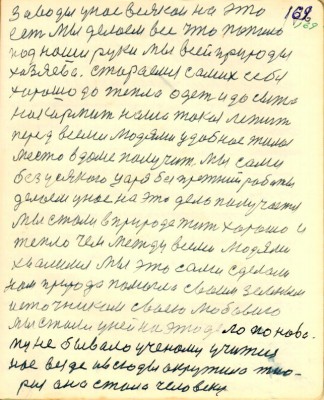 169
Заводы у нас всякои на это
есть мы делаем все что попало
под наши руки мы всей природы
хозяева. стараемся самих себя
хорошо до тепла одет и до сыта
накормит наша такая лежит
перед всеми людями удобное жилое
место в доме получит. мы сами
без усякого царя без прежней работы
делаем у нас на это дело получается
мы стали в природе жит хорошо и
тепло чем между всеми людями
хвалимся мы это сами сделали
нам природа помогла своим зеленым
источником своею любовию
мы стали у ней на это дело по ново-
му не бывало ученому учится
нас везде и всюду окружила тво-
ры она стала человеку